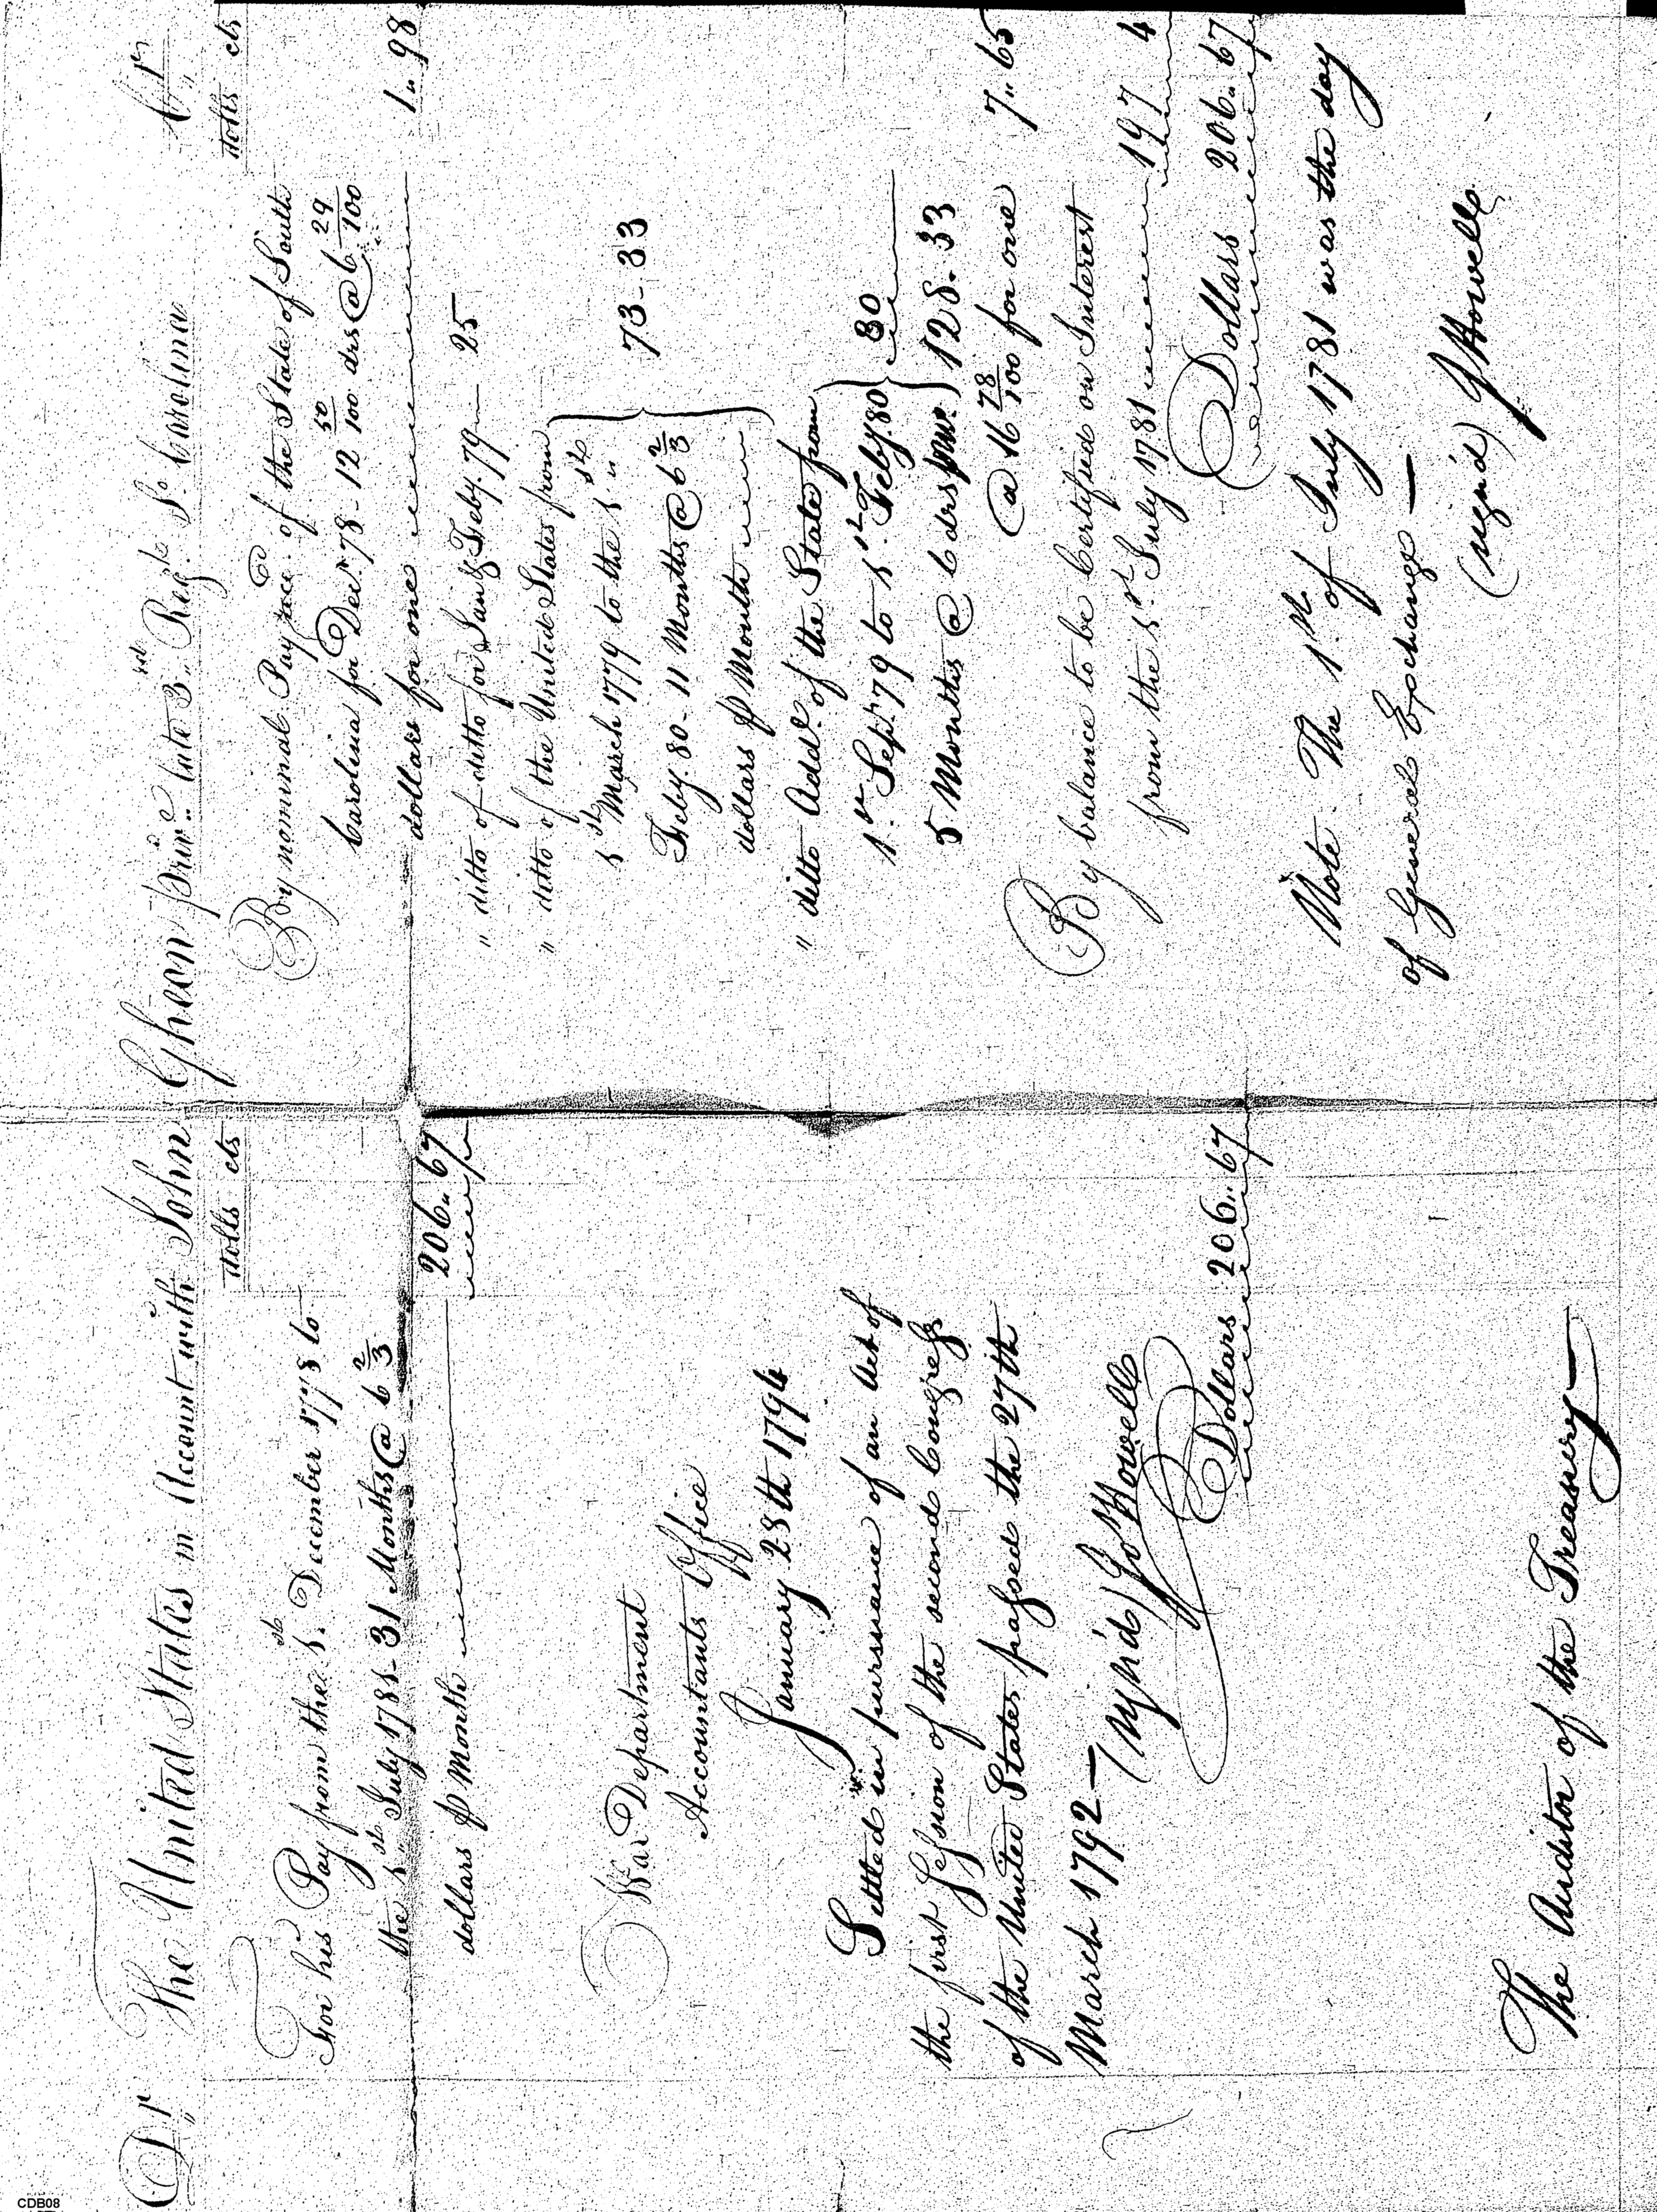 Dr The United States in Account with John Ghean priv.e late 3.rd Reg.t S.o Carolina Cr
dolls cts
For his Pay from the 1.st December 1778 to
the 1.st July 1781 - 31 Months @ 6 2/3
dollars ⅌ Month 206.. 67
War Department
Accountants Office
January 28th 1794
Settled in pursuance of an Act of
the first Session of the second Congress
of the United States passed the 27th
March 1792 —
(sign'd) Jo Howell
Dollars 206.. 67
The Auditor of the Treasury —
dolls cts
By nominal Pay &cc. of the State of South
Carolina for Dec.r 78 - 12 50/100 drs @ 6 29/100
dollars for one 1.. 98
" ditto of ditto for Jan & Feby. 79 25
" ditto of the United States from
1st March 1779 to the 1st
Feby. 80 - 11 Months @ 6 2/3
dollars ⅌ Month 73 - 33
" ditto Add.l of the State from
1.st Sep.t 79 to 1.st Feby 80
5 Months @ 6 drs pm. 30
128. 33
@ 16 78/100 for one 7.. 65
By balance to be Certified on Interest
from the 1.st July 1781 197 4
Dollars 206.. 67
Note. The 1.st of July 1781 was the day
of General Exchange —
(sign'd) J Howell
CDB08